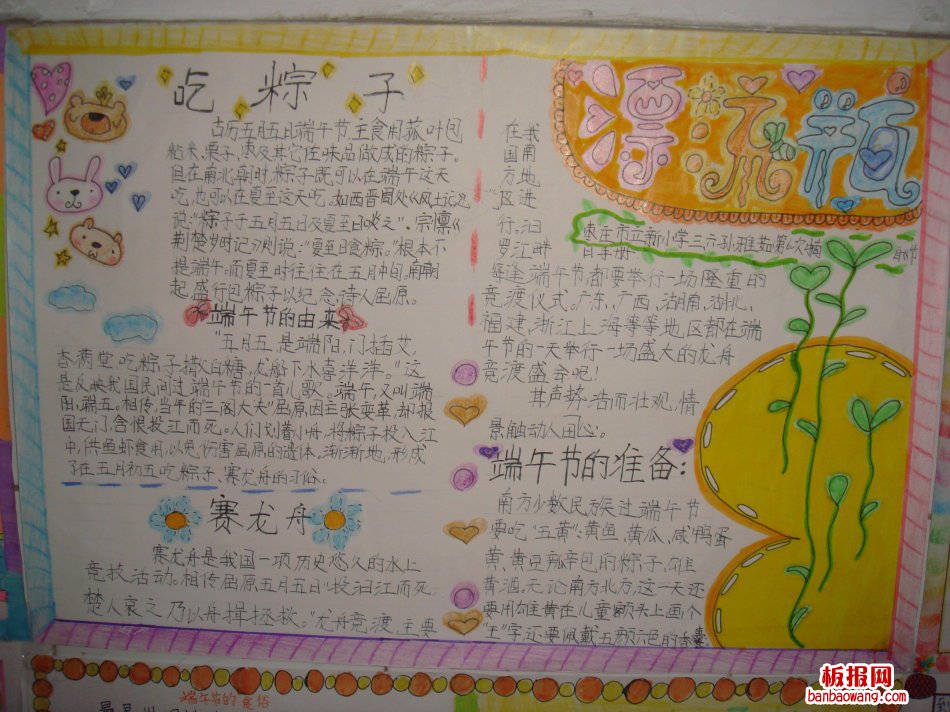 吃粽子
古历五月五日端午节主食用菰叶包
粘米、栗子、枣及其它佐味品做成的粽子。
但在南北朝时,粽子既可以在端午这天
吃,也可以在夏至这天吃,如西晋周处《风土记》
说:"粽子于五月五日及夏至日啖之"。宗懔《
荆楚岁时记》则说:"夏至日食粽。"根本不
提端午。而夏至时往往在五月中间,南朝
起盛行包粽子以纪念诗人屈原。
端午节的由来
"五月五,是端阳,门插艾,
香满堂,吃粽子,撒白糖,龙船下水喜洋洋。"这
是反映我国民间过端午节的一首儿歌。端午,又叫端
阳,端五。相传,当年的三闾大夫"屈原因主张变革,却报
国无门,含恨投江而死。人们划着小舟,将粽子投入江
中,供鱼虾食用,以免伤害屈原的遗体。渐渐地,形成
了在五月初五吃粽子、赛龙舟的习俗。
赛龙舟
赛龙舟是我国一项历史悠久的水上
竞技活动。相传屈原五月五日"投汨江而死,
楚人哀之,乃以舟揖拯救。"龙舟竞渡,主要
漂流瓶
枣庄市立新小学三六
在我
国南
方地
区进
行,汩
罗江畔
每逢端午节都要举行一场隆重的
竞渡仪式。广东,广西,湖南,湖北,
福建,浙江,上海等等地区都在端
午节的一天举行一场盛大的龙舟
竞渡盛会吧!
其声势,浩而壮观,情
景触动人田心。
端午节的准备:
南方少数民族过端午节
要吃"五黄":黄鱼,黄瓜,咸鸭蛋
黄,黄豆瓣辛包的粽子,雄
黄酒,无论南方北方,这一天还
要用雄黄在儿童额头上画个
"王"字还要佩戴五颜六色的香囊
端午节的食俗
板报网
banbaowang.com